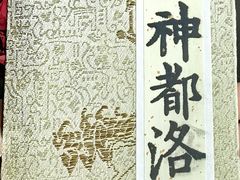 神都洛